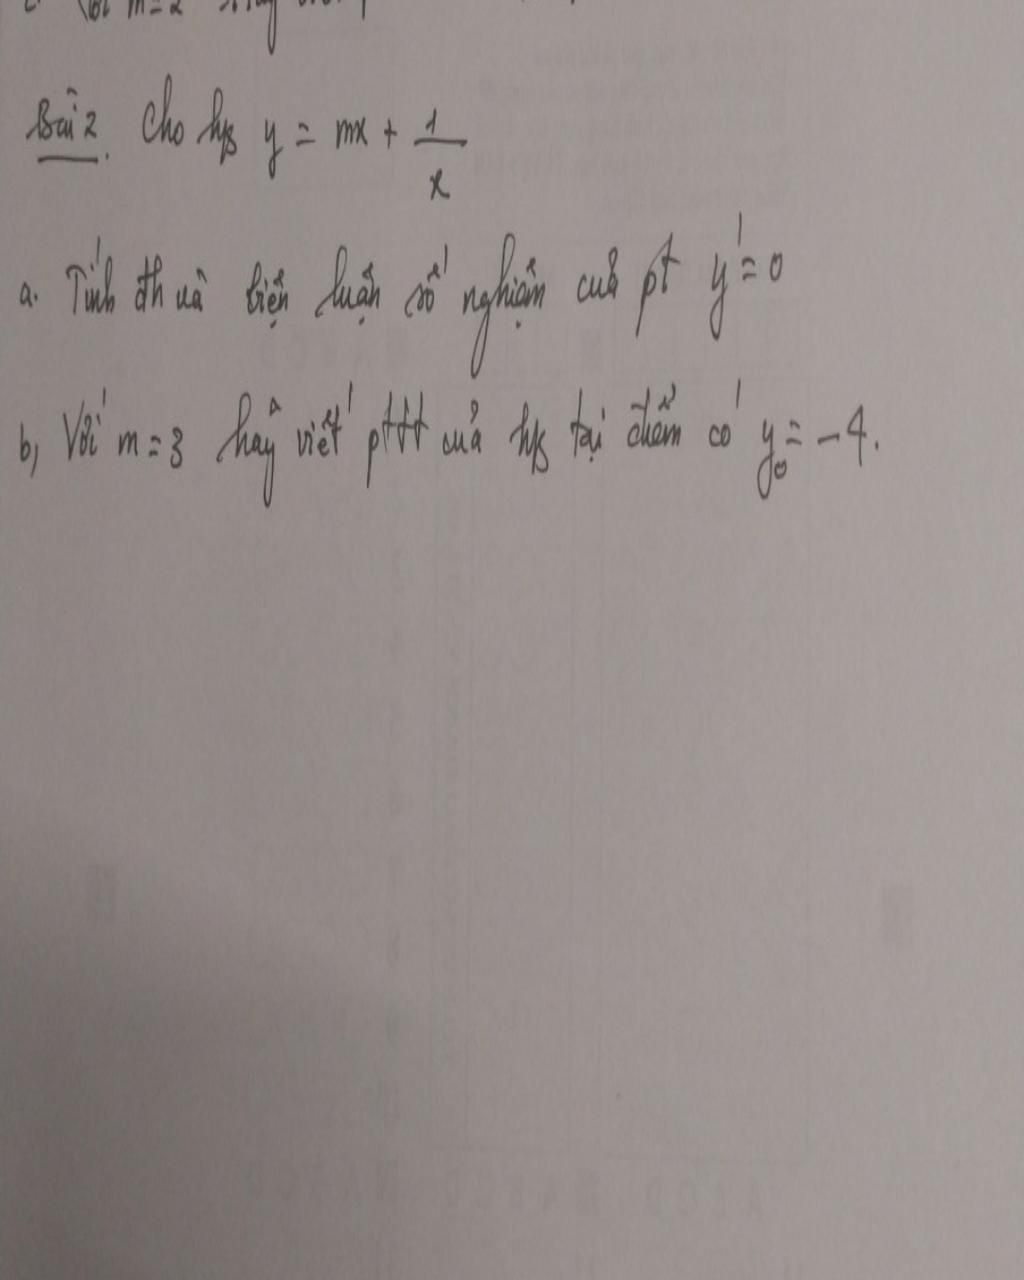 với m=2
Bài 2. Cho hs y = mx + 1/x
a. Tính đh và biện luận số nghiệm của pt y'=0
b, Với m=3 hãy viết pttt của hs tại điểm có y₀=-4.